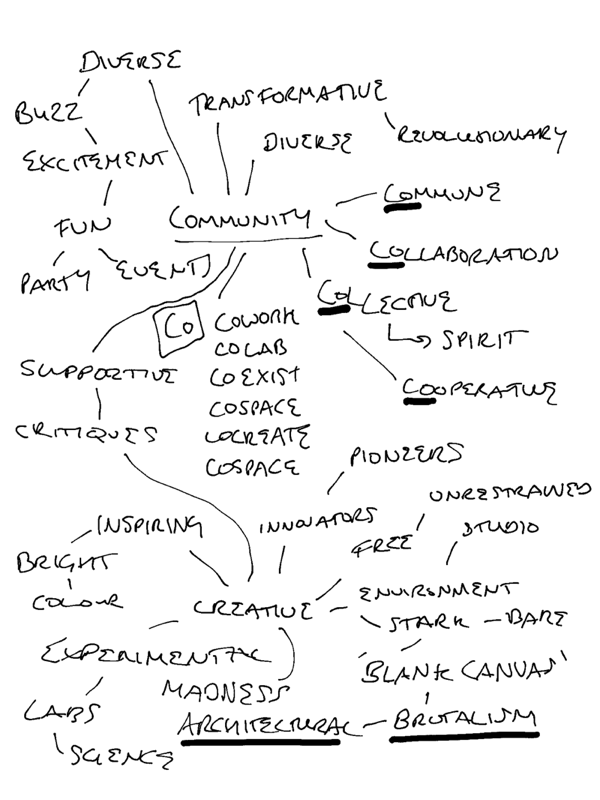 DIVERSE
BUZZ
TRANSFORMATIVE
DIVERSE
REVOLUSIONARY
EXCITEMENT
COMMUNE
FUN
COMMUNITY
COLLABORATION
PARTY
EVENTS
COLLECTIVE
CO
COWORK
SPIRIT
COLAB
SUPPORTIVE
COEXIST
COOPERATIVE
COSPACE
CRITIQUES
COCREATE
COSPACE
PIONEERS
UNRESTRAINED
INSPIRING
INNOVATORS
STUDIO
FREE
BRIGHT
COLOUR
CREATIVE
ENVIRONMENT
STARK – BARE
EXPERIMENTAL
'BLANK CANVAS'
MADNESS
LABS
ARCHITECTURAL – BRUTALISM
SCIENCE